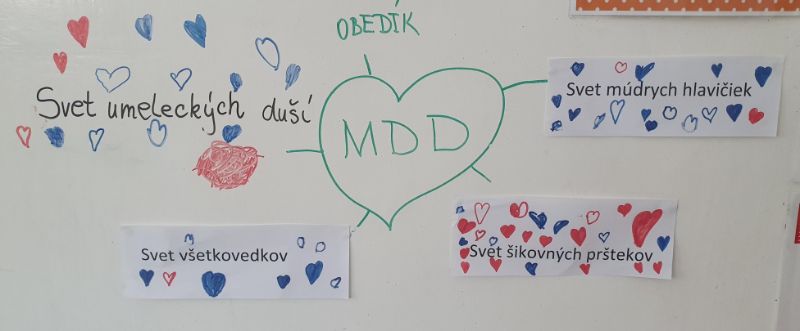 OBEDÍK
Svet umeleckých duší
MDD
Svet múdrych hlavičiek
Svet všetkovedkov
Svet šikovných prštekov